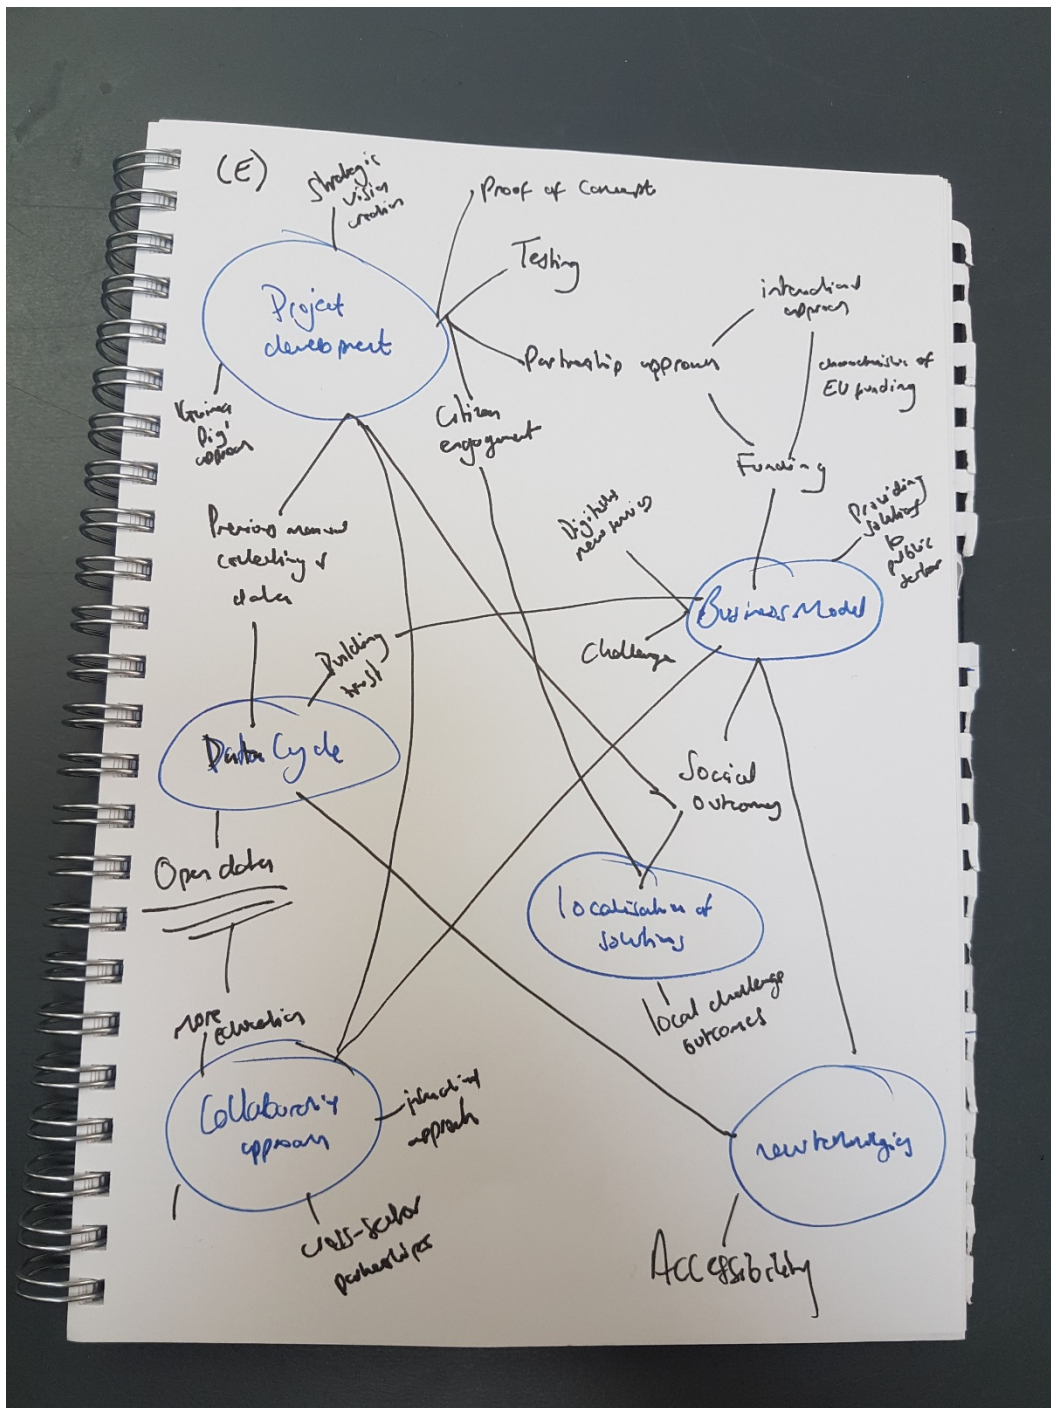 (E)
Strategic
vision
creation
Proof of Concept
Testing
Partnership approach
international
approach
characteristics of
EU funding
Project
development
'Guinea
Pig'
approach
Citizen
engagement
Funding
Previous manual
collecting of
data
Digitally
new
Providing
solutions
to
public
sector
Business Model
Challenge
Building
trust
Data Cycle
Social
outcomes
Open data
Localisation of
solutions
local challenge
outcomes
more
education
Collaborative
approach
approach
cross-sector
partnerships
new technologies
Accessibility